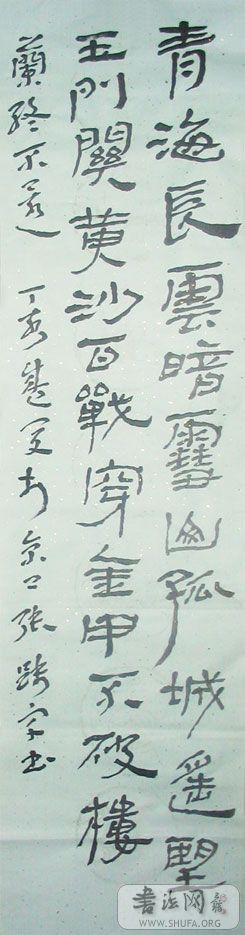 青海長雲暗雪山孤城遥望
玉門關黄沙百戰穿金甲不破樓
蘭終不還 丁亥盛夏於京口張書
書法网
WWW.SHUFA.ORG